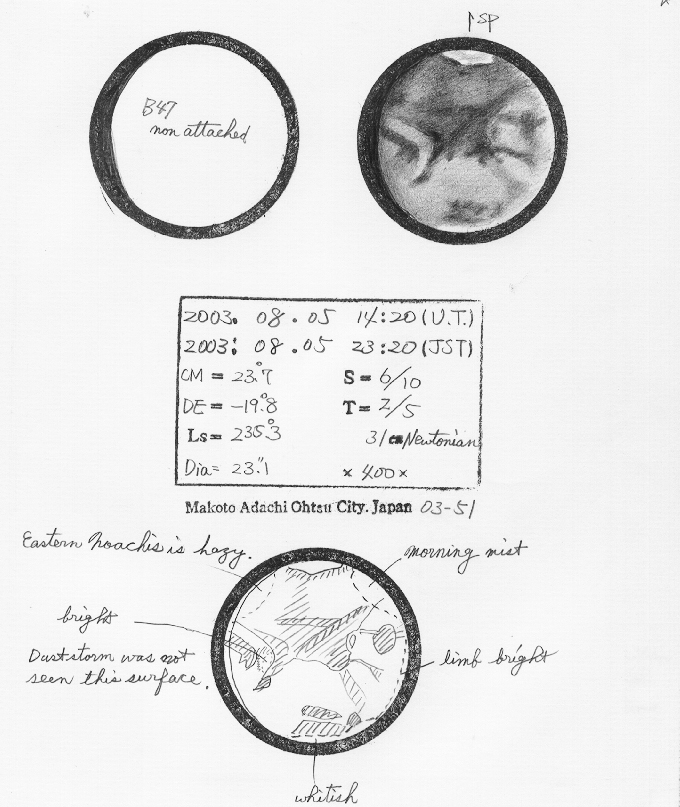 ↑SP
B47
non attached
2003. 08.05 14:20(U.T.)
2003: 08.05 23:20(JST)
CM = 23.°7 S = 6/10
DE = -19.°8 T = 2/5
Ls = 235.°3 31cm Newtonian
Dia = 23."1 × 400×
Makoto Adachi Ohtsu City. Japan 03-51
Eastern Noachis is hazy.
morning mist
bright
Dust storm was not
seen this surface.
limb bright
whitish